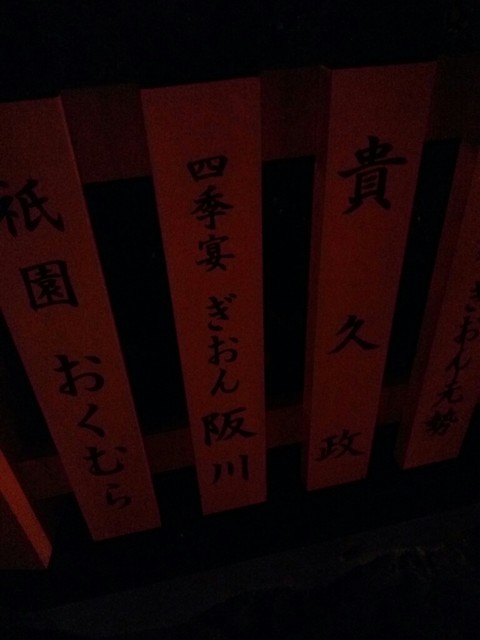 貴久政
四季宴 ぎおん 阪川
祇園 おくむら